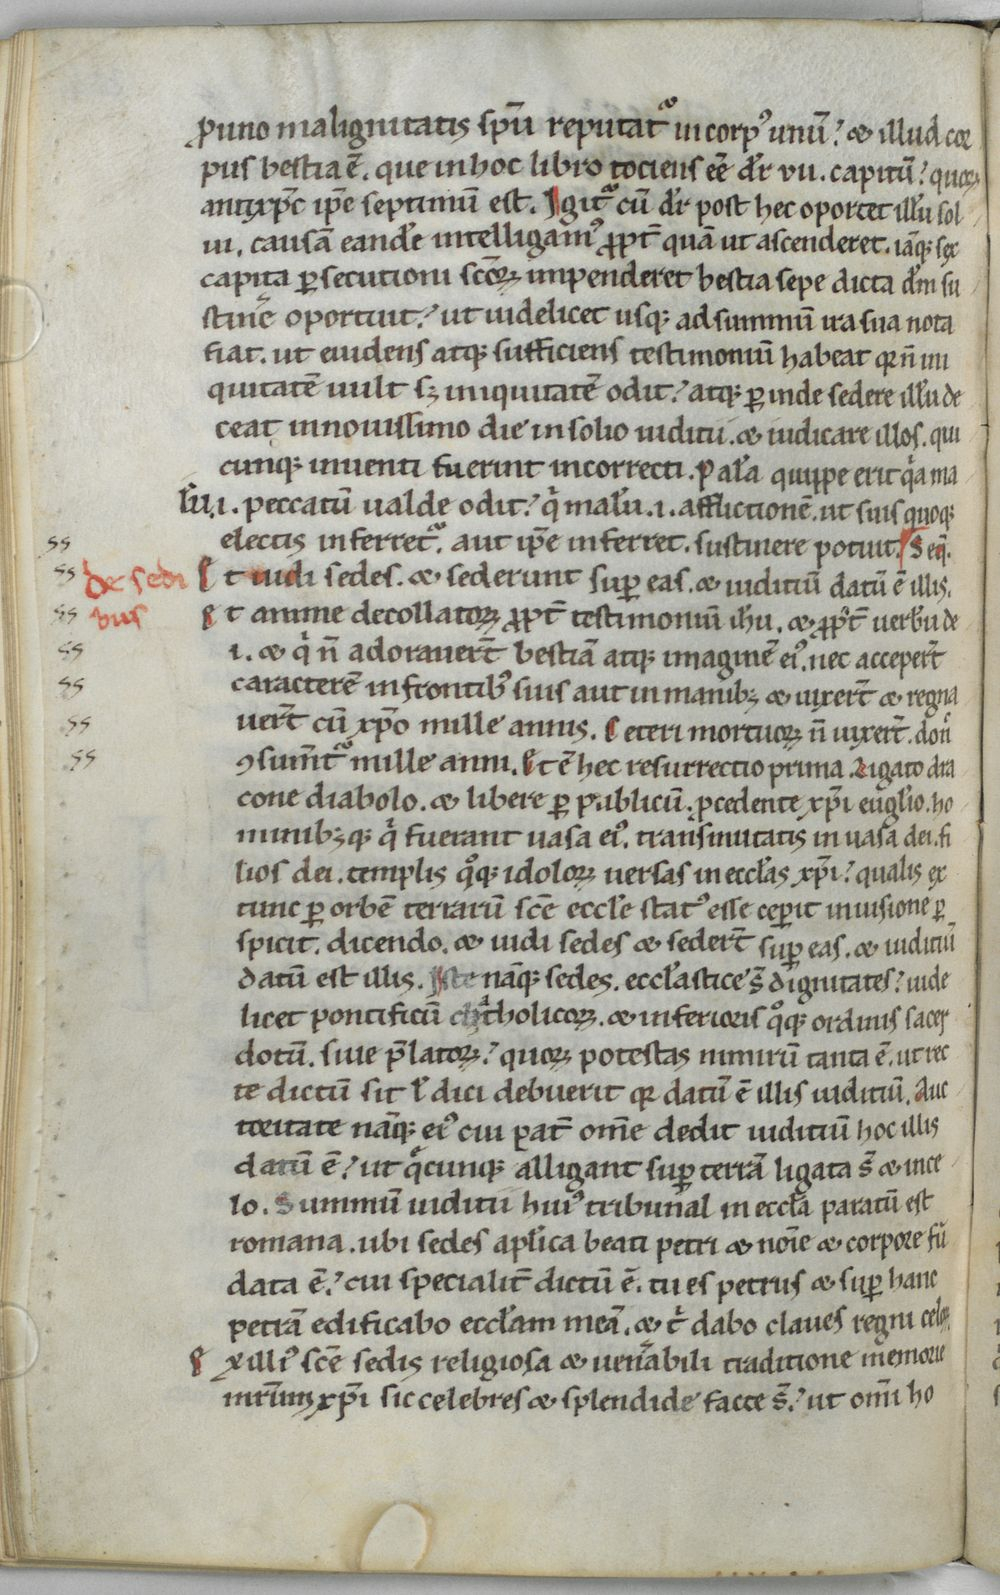 ꝓ uno malignitatis sp̄u reputat᷑ in corpꝰ unū. ⁊ illud cor
pus bestia ē. que in hoc libro tociens eē dr̄ vii. capitū. quoꝝ
antixp̄c ip̄e septimū est. Igit᷑ cū dr̄ post hec oportet illū sol
ui. causā eandē intelligamꝰ ꝓpt̄ quā ut ascenderet. iāqꝫ sex
capita ꝑsecutioni sc̄oꝝ impenderet bestia sepe dicta dn̄m su
stinē oportuit. ut uidelicet usqꝫ ad summū ira sua nota
fiat. ut euidens atqꝫ sufficiens testimoniū habeat qr n̄ ini
quitatē uult sꝫ iniquitatē odit. atqꝫ ꝑinde sedere illū de
ceat in nouissimo die in solio iuditii. ⁊ iudicare illos. qui
cunqꝫ inuenti fuerint incorrecti. Palā quippe erit qͣ ma
lū .i. peccatū ualde odit. qͥ malū .i. afflictionē. ut suis quoqꝫ
electis inferret᷑. aut ip̄e inferret. sustinere potuit. Seq̄.
ss
ss
de sedi
bus
Et uidi sedes. ⁊ sederunt suꝑ eas. ⁊ iuditiū datū ē illis.
ss
Et anime decollatoꝝ ꝓpt̄ testimoniū ih̄u. ⁊ ꝓpt̄ uerbū de
ss
i. ⁊ qͥ n̄ adorauert̄ bestiā atqꝫ imaginē eiꝰ. nec accepert̄
ss
caracterē in frontibꝰ suis aut in manibꝫ ⁊ uixert̄ ⁊ regna
ss
uert̄ cū xp̄o mille annis. Ceteri mortuoꝝ n̄ uixert̄. don̄
ss
ꝯsum̄t᷑ mille anni. Et ē hec resurrectio prima. Ligato dra
cone diabolo. ⁊ libere ꝑ publicū. ꝓcedente xp̄i euglīo. ho
minibꝫqꝫ qͥ fuerant uasa eiꝰ. transmutatis in uasa dei. fi
lios dei. templis qͦqꝫ idoloꝝ uersas in eccl̄as xp̄i. qualis ex
tunc ꝑ orbē terrarū sc̄e eccl̄e statꝰ esse ceꝑit in uisione ꝑ
spicit. dicendo. ⁊ uidi sedes ⁊ sedert̄ suꝑ eas. ⁊ iuditiū
datū est illis. Iste nāqꝫ sedes. eccl̄astice s̄ dignitates. uide
licet pontificū catholicoꝝ. ⁊ inferioris qͦqꝫ ordinis sacer
dotū. siue p̄latoꝝ. quoꝝ potestas nimirū tanta ē. ut rec
te dictū sit ł dici debuerit qr datū ē illis iuditiū. Auc
toritate nāqꝫ eiꝰ cui pat̄ om̄e dedit iuditiū hoc illis
datū ē. ut qͤcunqꝫ alligant suꝑ terrā ligata s̄ ⁊ in ce
lo. Summū iuditii huiꝰ tribunal in eccl̄a paratū est
romana. ubi sedes apl̄ica beati petri ⁊ noīe ⁊ corpore fū
data ē. cui specialit̄ dictū ē. tu es petrus ⁊ suꝑ hanc
petrā edificabo eccl̄am meā. ⁊ tͥ dabo claues regni celoꝝ.
Ex illiꝰ sc̄e sedis religiosa ⁊ uenᷓabili traditione memorie
mr̄um xp̄i sic celebres ⁊ splendide facte s̄. ut om̄i ho